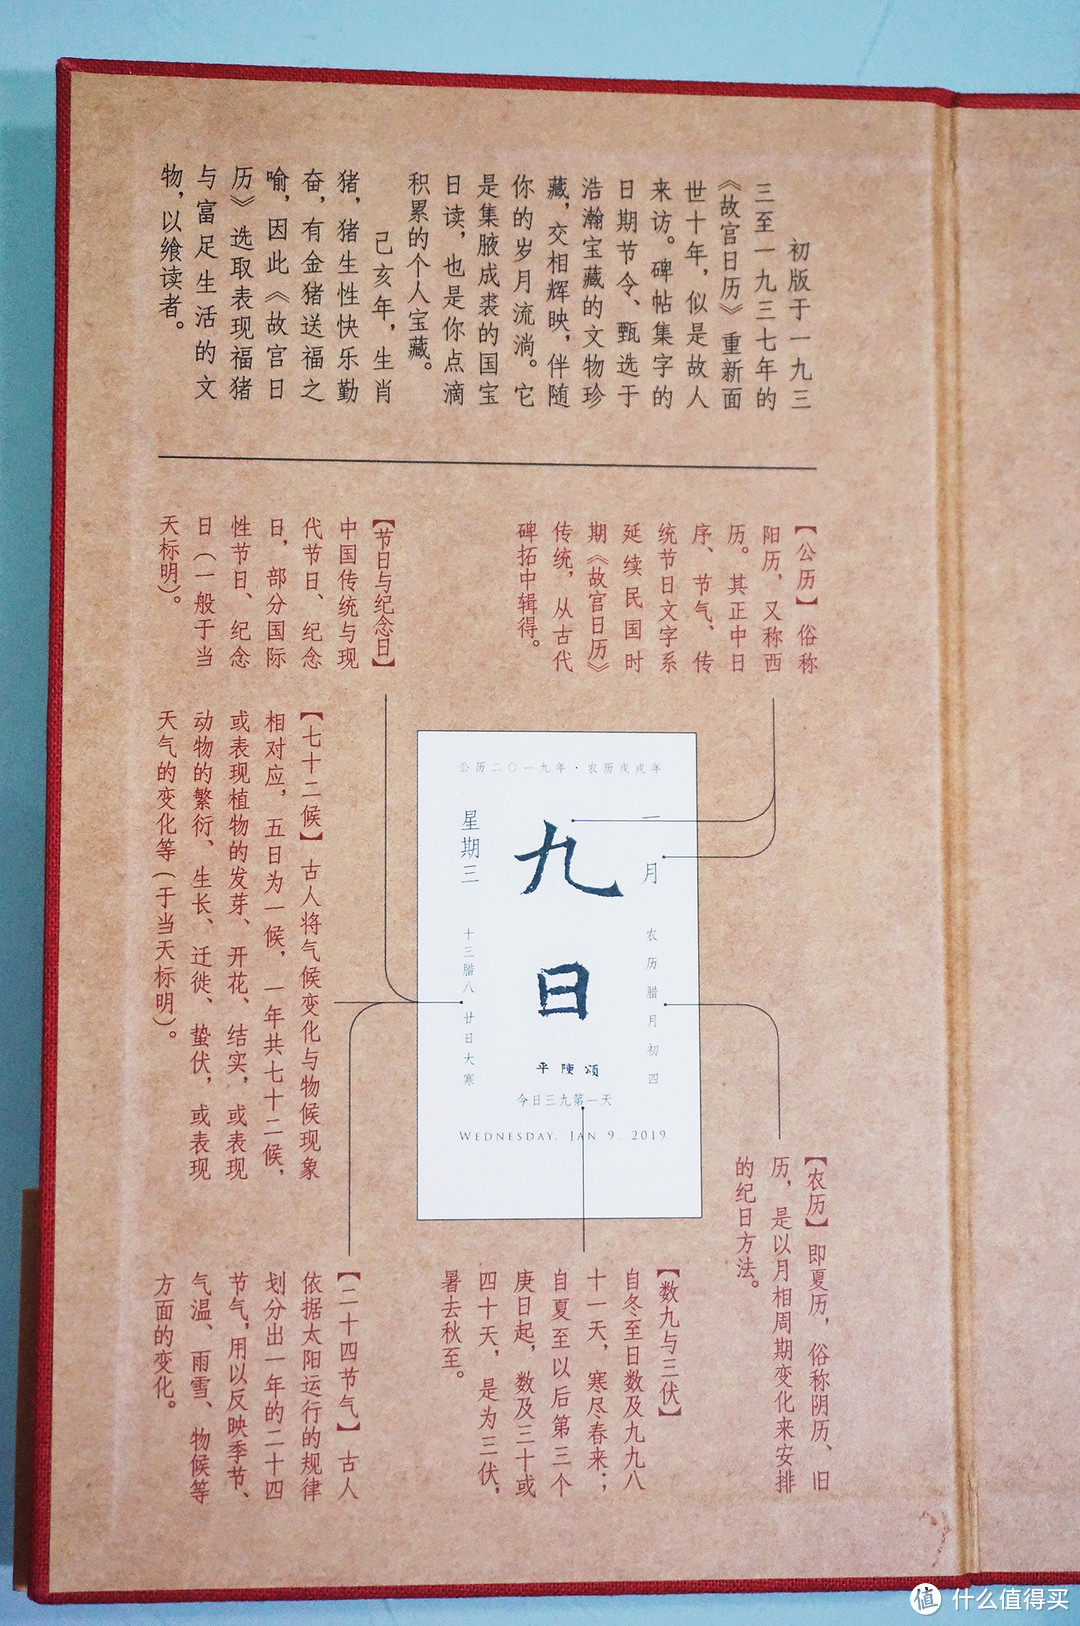 初版于一九三
三至一九三七年的
《故宫日历》重新面
世十年，似是故人
来访。碑帖集字的
日期节令、甄选于
浩瀚宝藏的文物珍
藏，交相辉映，伴随
你的岁月流淌。它
是集腋成裘的国宝
日读，也是你点滴
积累的个人宝藏。
己亥年，生肖
猪，猪生性快乐勤
奋，有金猪送福之
喻，因此《故宫日
历》选取表现福猪
与富足生活的文
物，以飨读者。
【公历】俗称
阳历，又称西
历。其正中日
序、节气、传
统节日文字系
延续民国时
期《故宫日历》
传统，从古代
碑拓中辑得。
【节日与纪念日】
中国传统与现
代节日、纪念
日，部分国际
性节日、纪念
日（一般于当
天标明）。
【七十二候】古人将气候变化与物候现象
相对应，五日为一候，一年共七十二候，
或表现植物的发芽、开花、结实，或表现
动物的繁衍、生长、迁徙、蛰伏，或表现
天气的变化等（于当天标明）。
公历二〇一九年·农历戊戌年
一月
农历腊月初四
九日
星期三
十三腊八 廿日大寒
平陳頌
今日三九第一天
WEDNESDAY, JAN 9, 2019
【农历】即夏历，俗称阴历、旧
历，是以月相周期变化来安排
的纪日方法。
【数九与三伏】
自冬至日数及九九八
十一天，寒尽春来；
自夏至以后第三个
庚日起，数及三十或
四十天，是为三伏，
暑去秋至。
【二十四节气】古人
依据太阳运行的规律
划分出一年的二十四
节气，用以反映季节、
气温、雨雪、物候等
方面的变化。
值 什么值得买